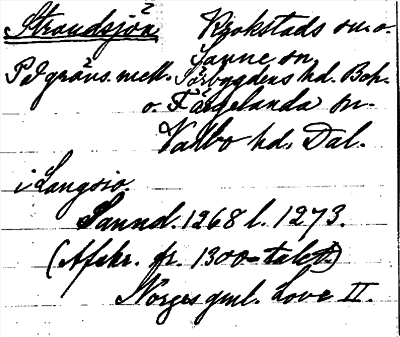 Strandsjön Krokstads sn. o.
Sanne sn
På gräns. mell. Sörbygdens hd. Boh.
o. Färgelanda sn.
Valbo hd. Dal.
i Langsio.
Sannd. 1268 l. 1273.
(Afskr. fr. 1300-talet.)
Norges gml. Love II.